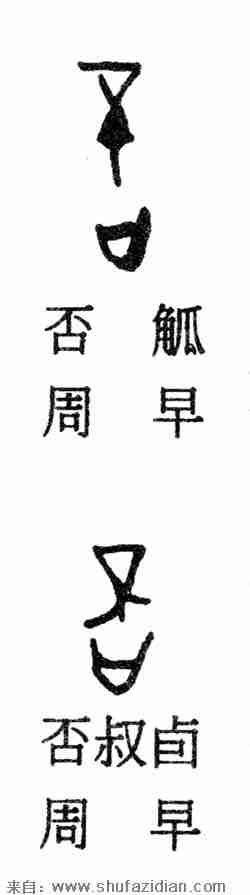 否
否 觚
周 早
否
否叔卣
周 早
来自: www.shufazidian.com